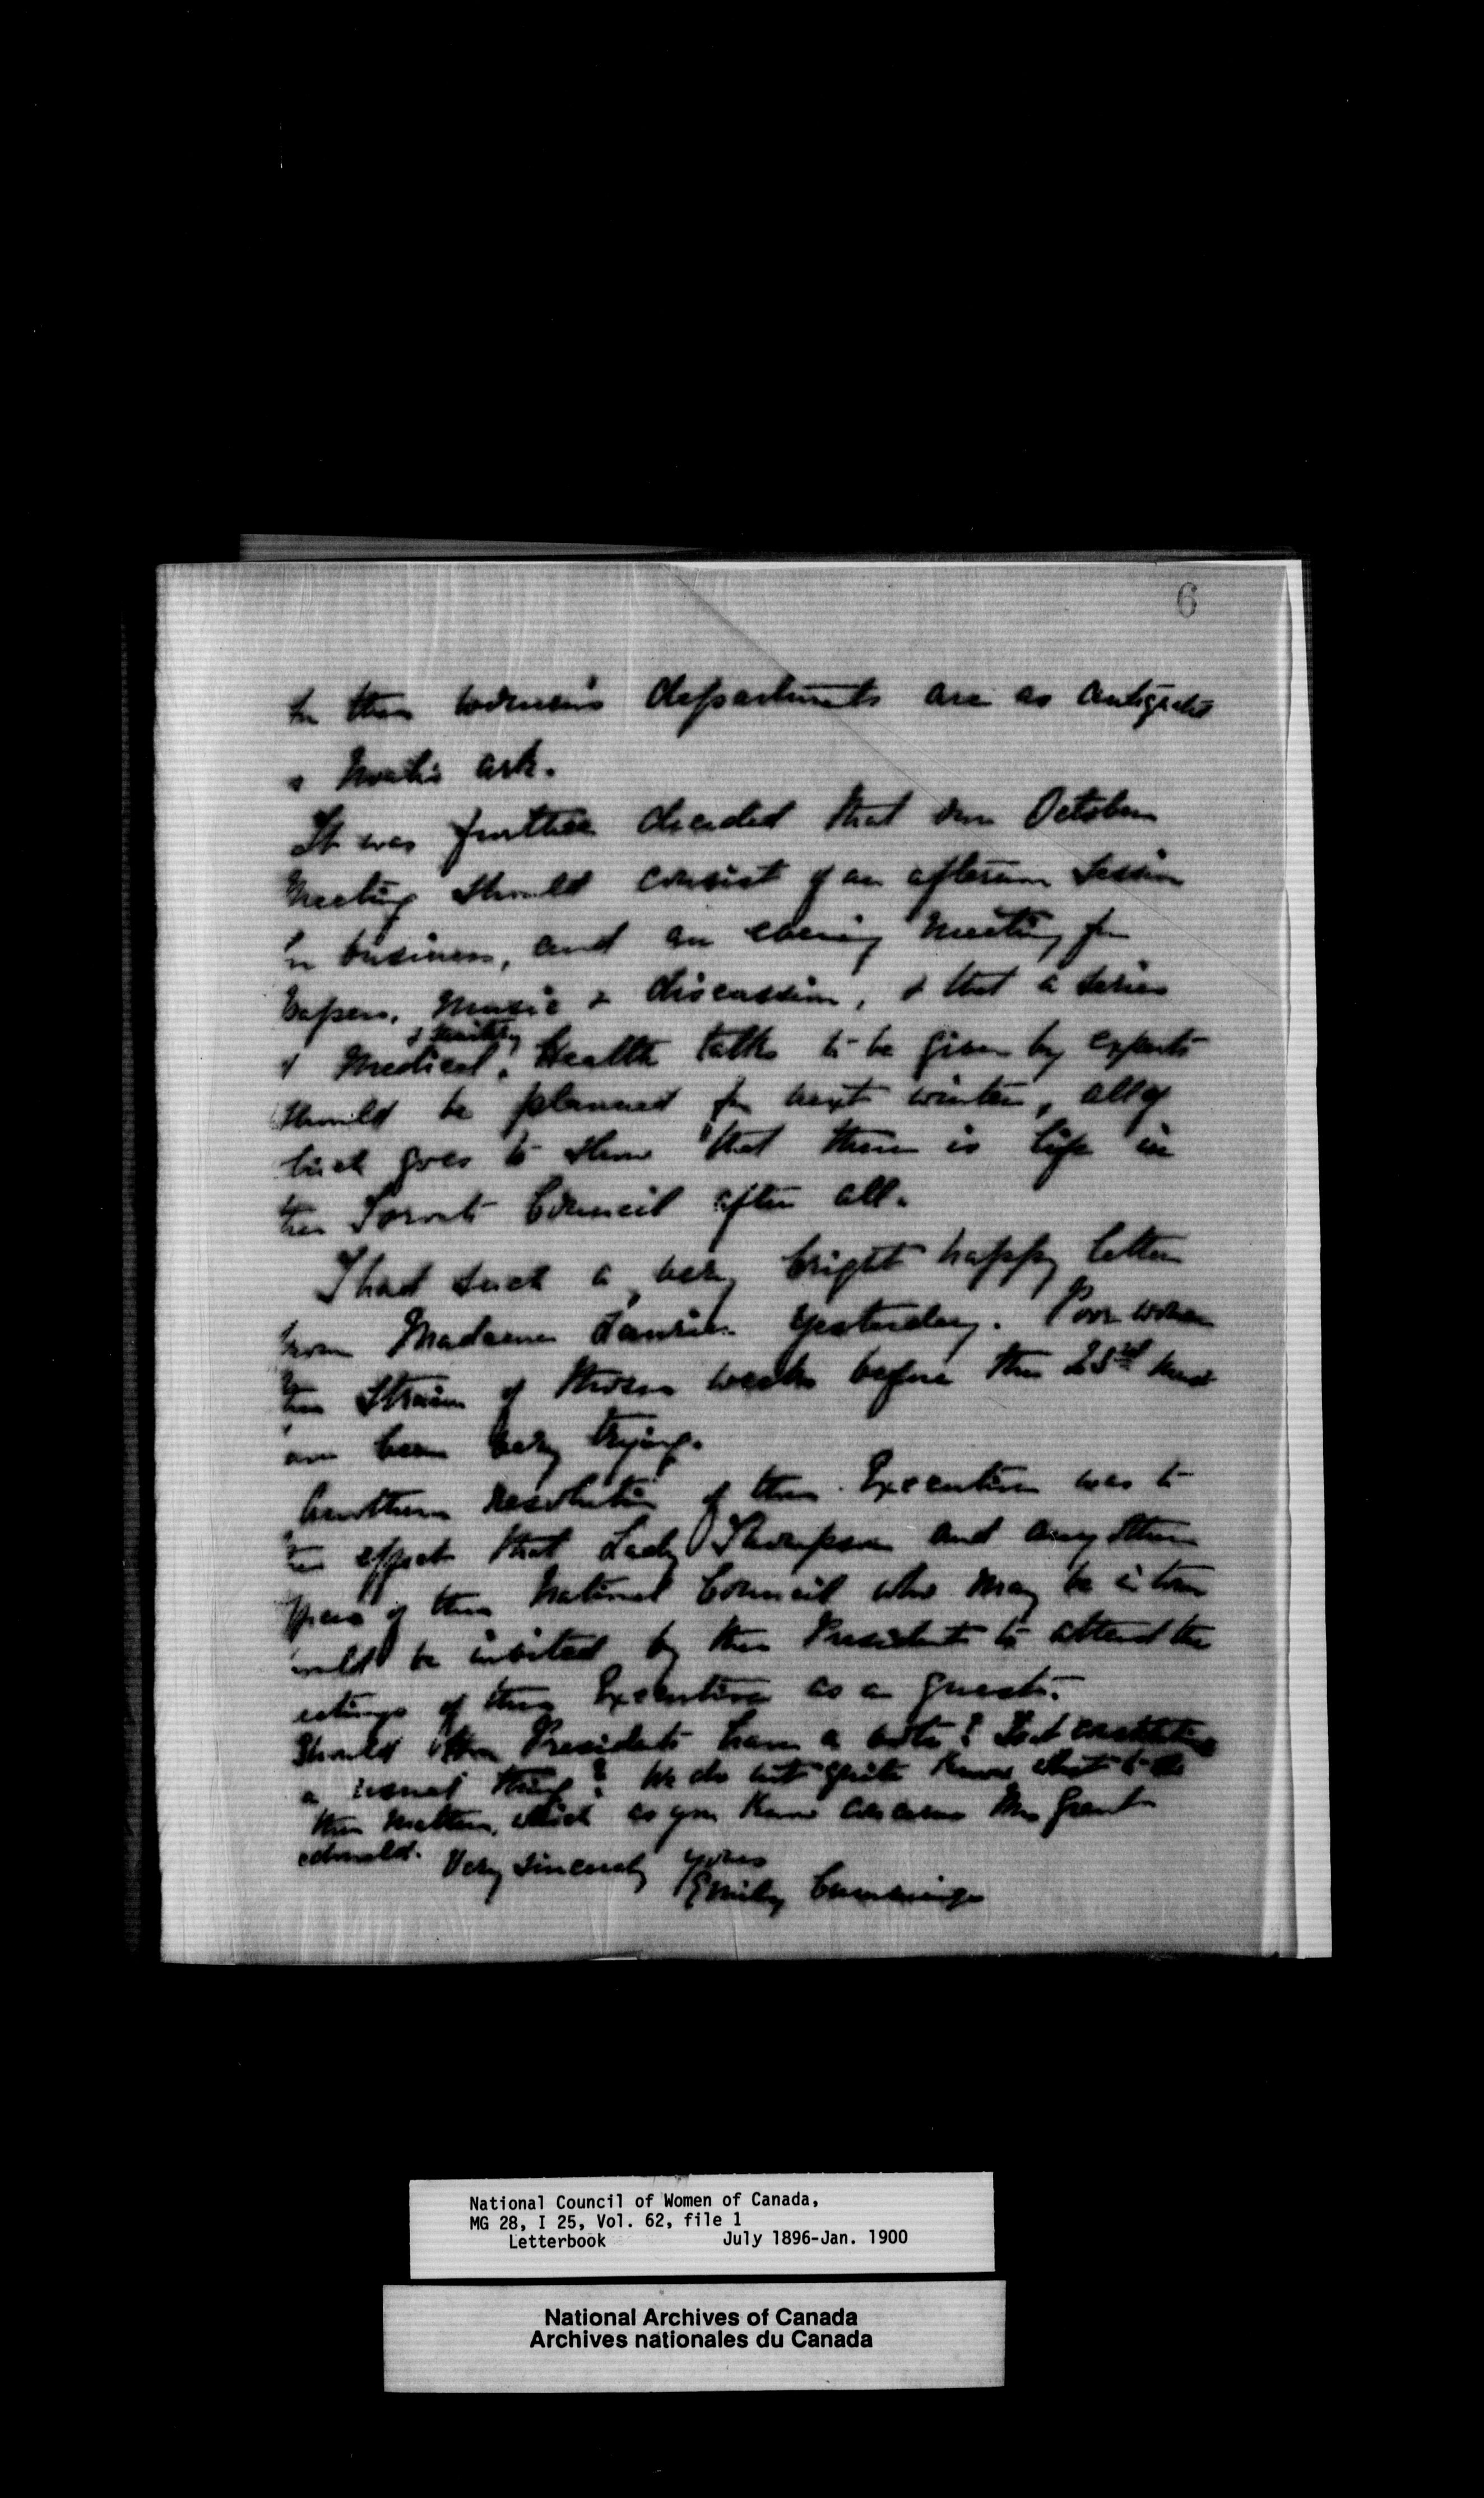 6
the women's departments are as antiquated
Noah's ark.
It was further decided that our October
Meeting should consist of an afternoon session
for business, and an evening Meeting for
papers, music & discussion, & that a series
& Sanitary
of Medical, Health talks to be given by experts
should be planned for next winter, all of
which goes to show that there is life in
the Toronto Council after all.
I had such a very bright happy letter
from Madame Laurier yesterday. Poor woman
the strain of those weeks before the 23rd must
have been very trying.
Another resolution of the Executive was to
the effect that Lady Thompson and any other
of the National Council who may be in town
should be invited by the President to attend the
meetings of the Executive as a guest.
Should the President have a vote? Is it
a usual thing? We do not quite know what to do
the matter, which as you know concerns Mrs Grant
Very sincerely yours
Emily Cummings
National Council of Women of Canada,
MG 28, I 25, Vol. 62, file 1
Letterbook July 1896-Jan. 1900
National Archives of Canada
Archives nationales du Canada